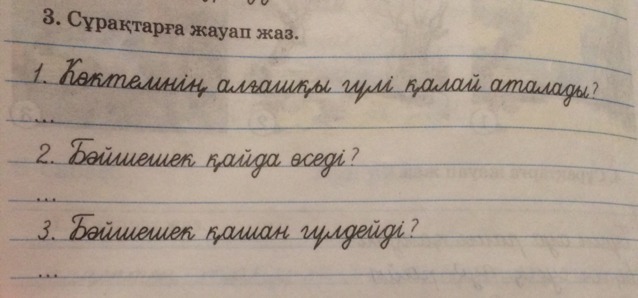 3. Сұрақтарға жауап жаз.
1. Көктемнің алғашқы гүлі қалай аталады?
...
2. Бәйшешек қайда өседі?
...
3. Бәйшешек қашан гүлдейді?
...